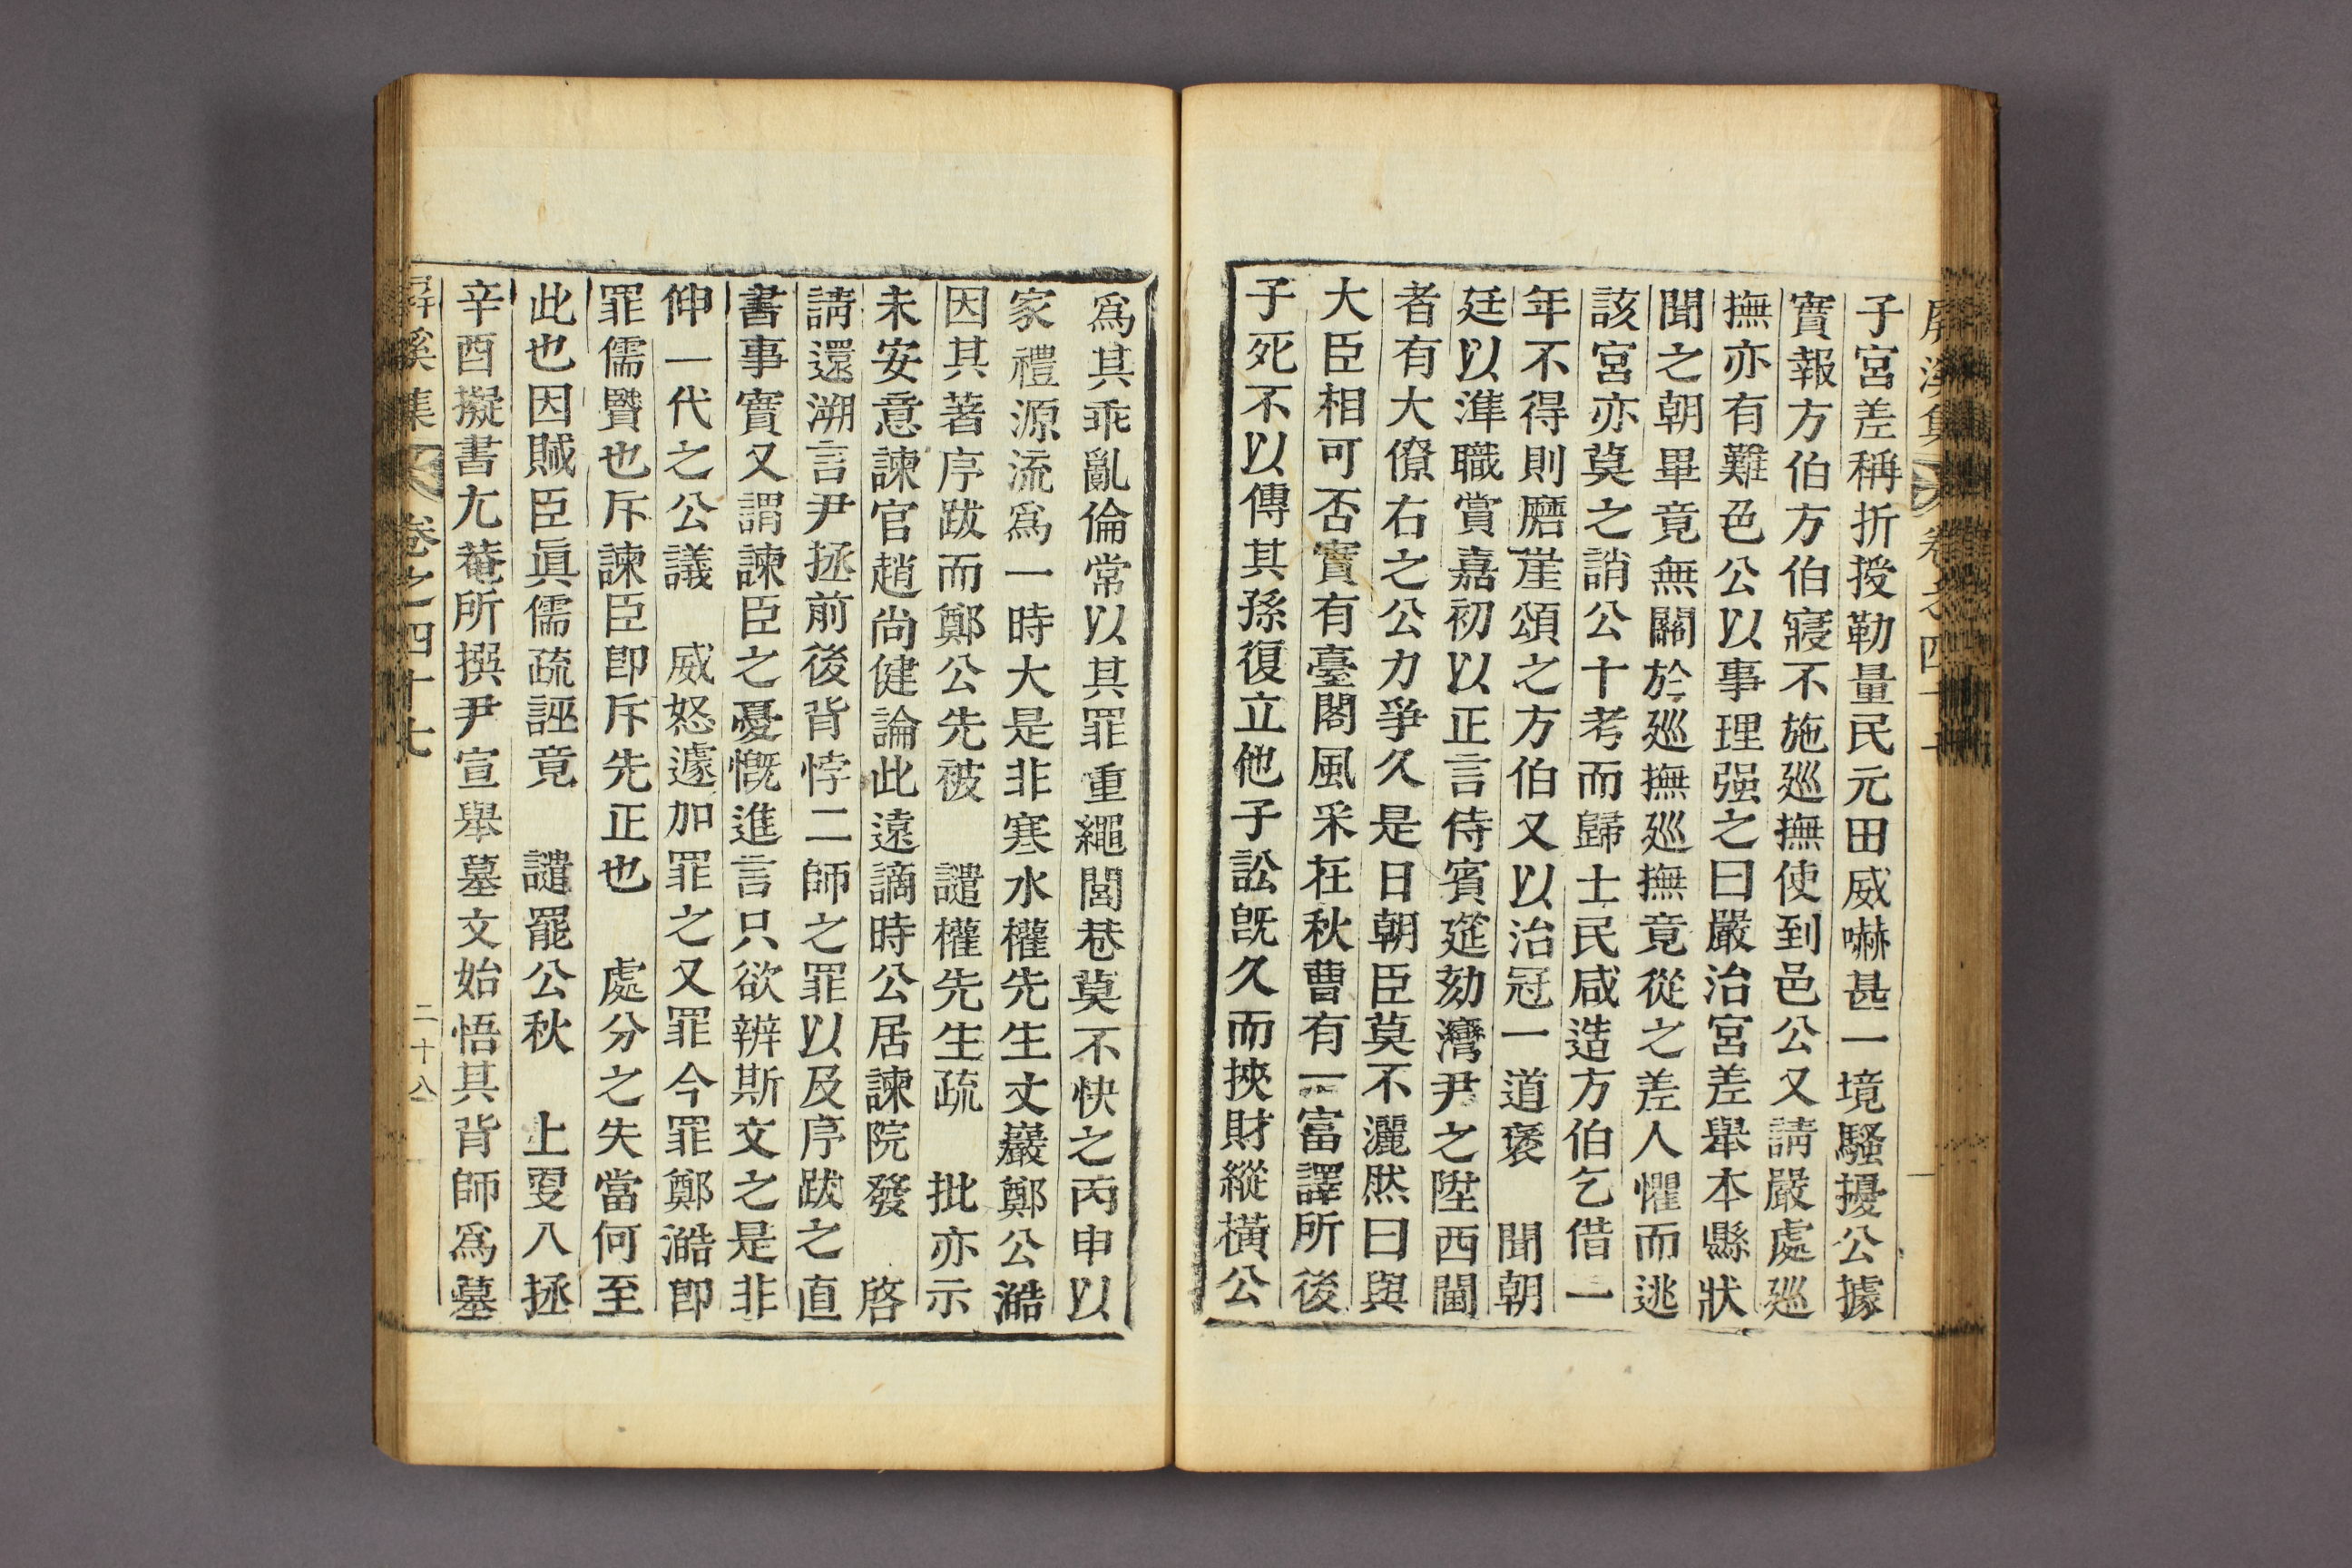 屛溪集 卷之四十七
子宮差稱折授勒量民元田威嚇甚一境騷擾公據
實報方伯方伯寢不施廵撫使到邑公又請嚴處廵
撫亦有難色公以事理强之曰嚴治宮差擧本縣狀
聞之朝畢竟無關於廵撫廵撫竟從之差人懼而逃
該宮亦莫之誚公十考而歸士民咸造方伯乞借一
年不得則磨崖頌之方伯又以治冠一道褒 聞朝
廷以準職賞嘉初以正言侍賓筵劾灣尹之陞西閫
者有大僚右之公力爭久是日朝臣莫不灑然曰與
大臣相可否實有臺閣風采在秋曹有一富譯所後
子死不以傳其孫復立他子訟旣久而挾財縱橫公
爲其乖亂倫常以其罪重繩閭巷莫不快之丙申以
家禮源流爲一時大是非寒水權先生丈巖鄭公澔
因其著序跋而鄭公先被 譴權先生疏 批亦示
未安意諫官趙尙健論此遠謫時公居諫院發 啓
請還溯言尹拯前後背悖二師之罪以及序跋之直
書事實又謂諫臣之憂慨進言只欲辨斯文之是非
伸一代之公議 威怒遽加罪之又罪今罪鄭澔卽
罪儒賢也斥諫臣卽斥先正也 處分之失當何至
此也因賊臣眞儒疏誣竟 譴罷公秋 上覃八拯
辛酉擬書尤菴所撰尹宣擧墓文始悟其背師爲墓
屛溪集 卷之四十七 二十八